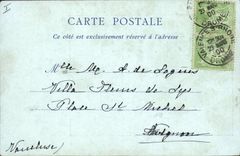 CARTE POSTALE
Ce côté est exclusivement réservé à l'adresse
Mlle M. A de Logères
Villa Fleurs de Lys
Place St Michel
Avignon
Vaucluse